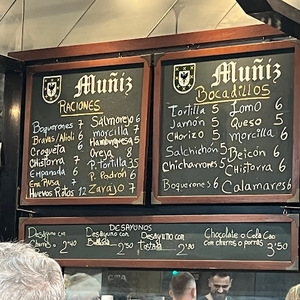 Muñiz
RACIONES
Boquerones 7
Bravas/Alioli 6
Croqueta 6
Chistorra 7
Empanada 6
Huevos Rotos 12
Salmorejo 6
morcilla 7
Hamburguesa 5
Oreja 8
P. Tortilla 15
P. Padrón 6
Zarajo 7
Muñiz
BOCADILLOS
Tortilla 5
Jamón 5
Chorizo 5
Salchichón 5
Chicharrones 5
Boquerones 6
Lomo 6
Queso 5
morcilla 6
Beicon 6
Chistorra 6
Calamares 6
DESAYUNOS
Desayuno con
Churros 2'40
Desayuno con
Bollería 2'50
Desayuno con
Tostada 2'80
Chocolate o Cola Cao
con churros o porras 3'50